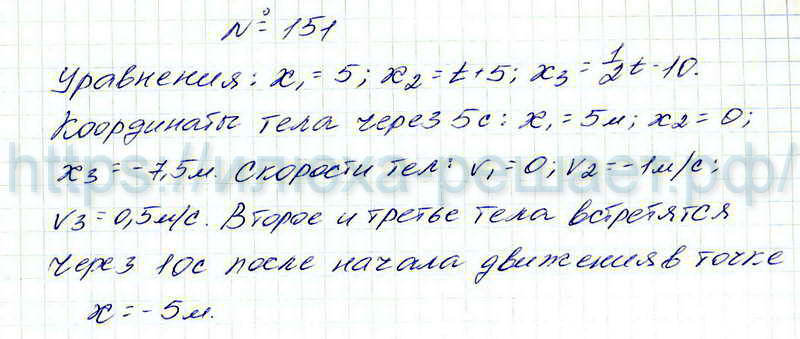 № 151
Уравнения: x₁ = 5; x₂ = t+5; x₃ = 1/2 t - 10.
Координаты тела через 5с: x₁ = 5м; x₂ = 0;
x₃ = -7,5м. Скорости тел: v₁ = 0; v₂ = -1м/с;
v₃ = 0,5м/с. Второе и третье тела встретятся
через 10с после начала движения в точке
x = -5м.